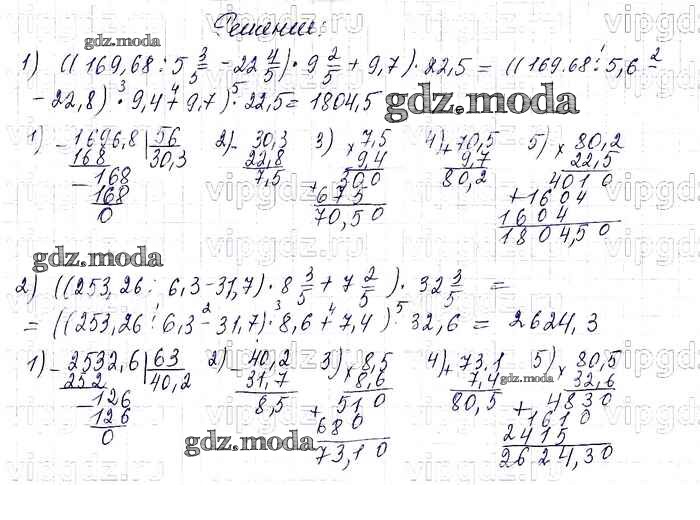 Решение:
gdz.moda
1) ((169,68 : 5 3/5 - 22 4/5) · 9 2/5 + 9,7) · 22,5 = ((169.68 : 5,6 -
- 22,8) · 9,4 + 9,7) · 22,5 = 1804,5
gdz.moda
1) - 1696,8 | 56
168 30,3
- 168
168
0
2) - 30,3
22,8
7,5
3) x 7,5
9,4
+ 300
675
70,50
4) + 70,5
9,7
80,2
5) x 80,2
22,5
4010
+ 1604
1604
1804,50
gdz.moda
2) ((253,26 : 6,3 - 31,7) · 8 3/5 + 7 2/5) · 32 3/5 =
= ((253,26 : 6,3 - 31,7) · 8,6 + 7,4) · 32,6 = 2624,3
1) - 2532,6 | 63
252 40,2
- 126
126
0
2) - 40,2
31,7
8,5
3) x 8,5
8,6
+ 510
680
73,10
4) + 73,1
7,4
80,5
5) x 80,5
32,6
+ 4830
1610
2415
2624,30
gdz.moda
gdz.moda
vipgdz.ru